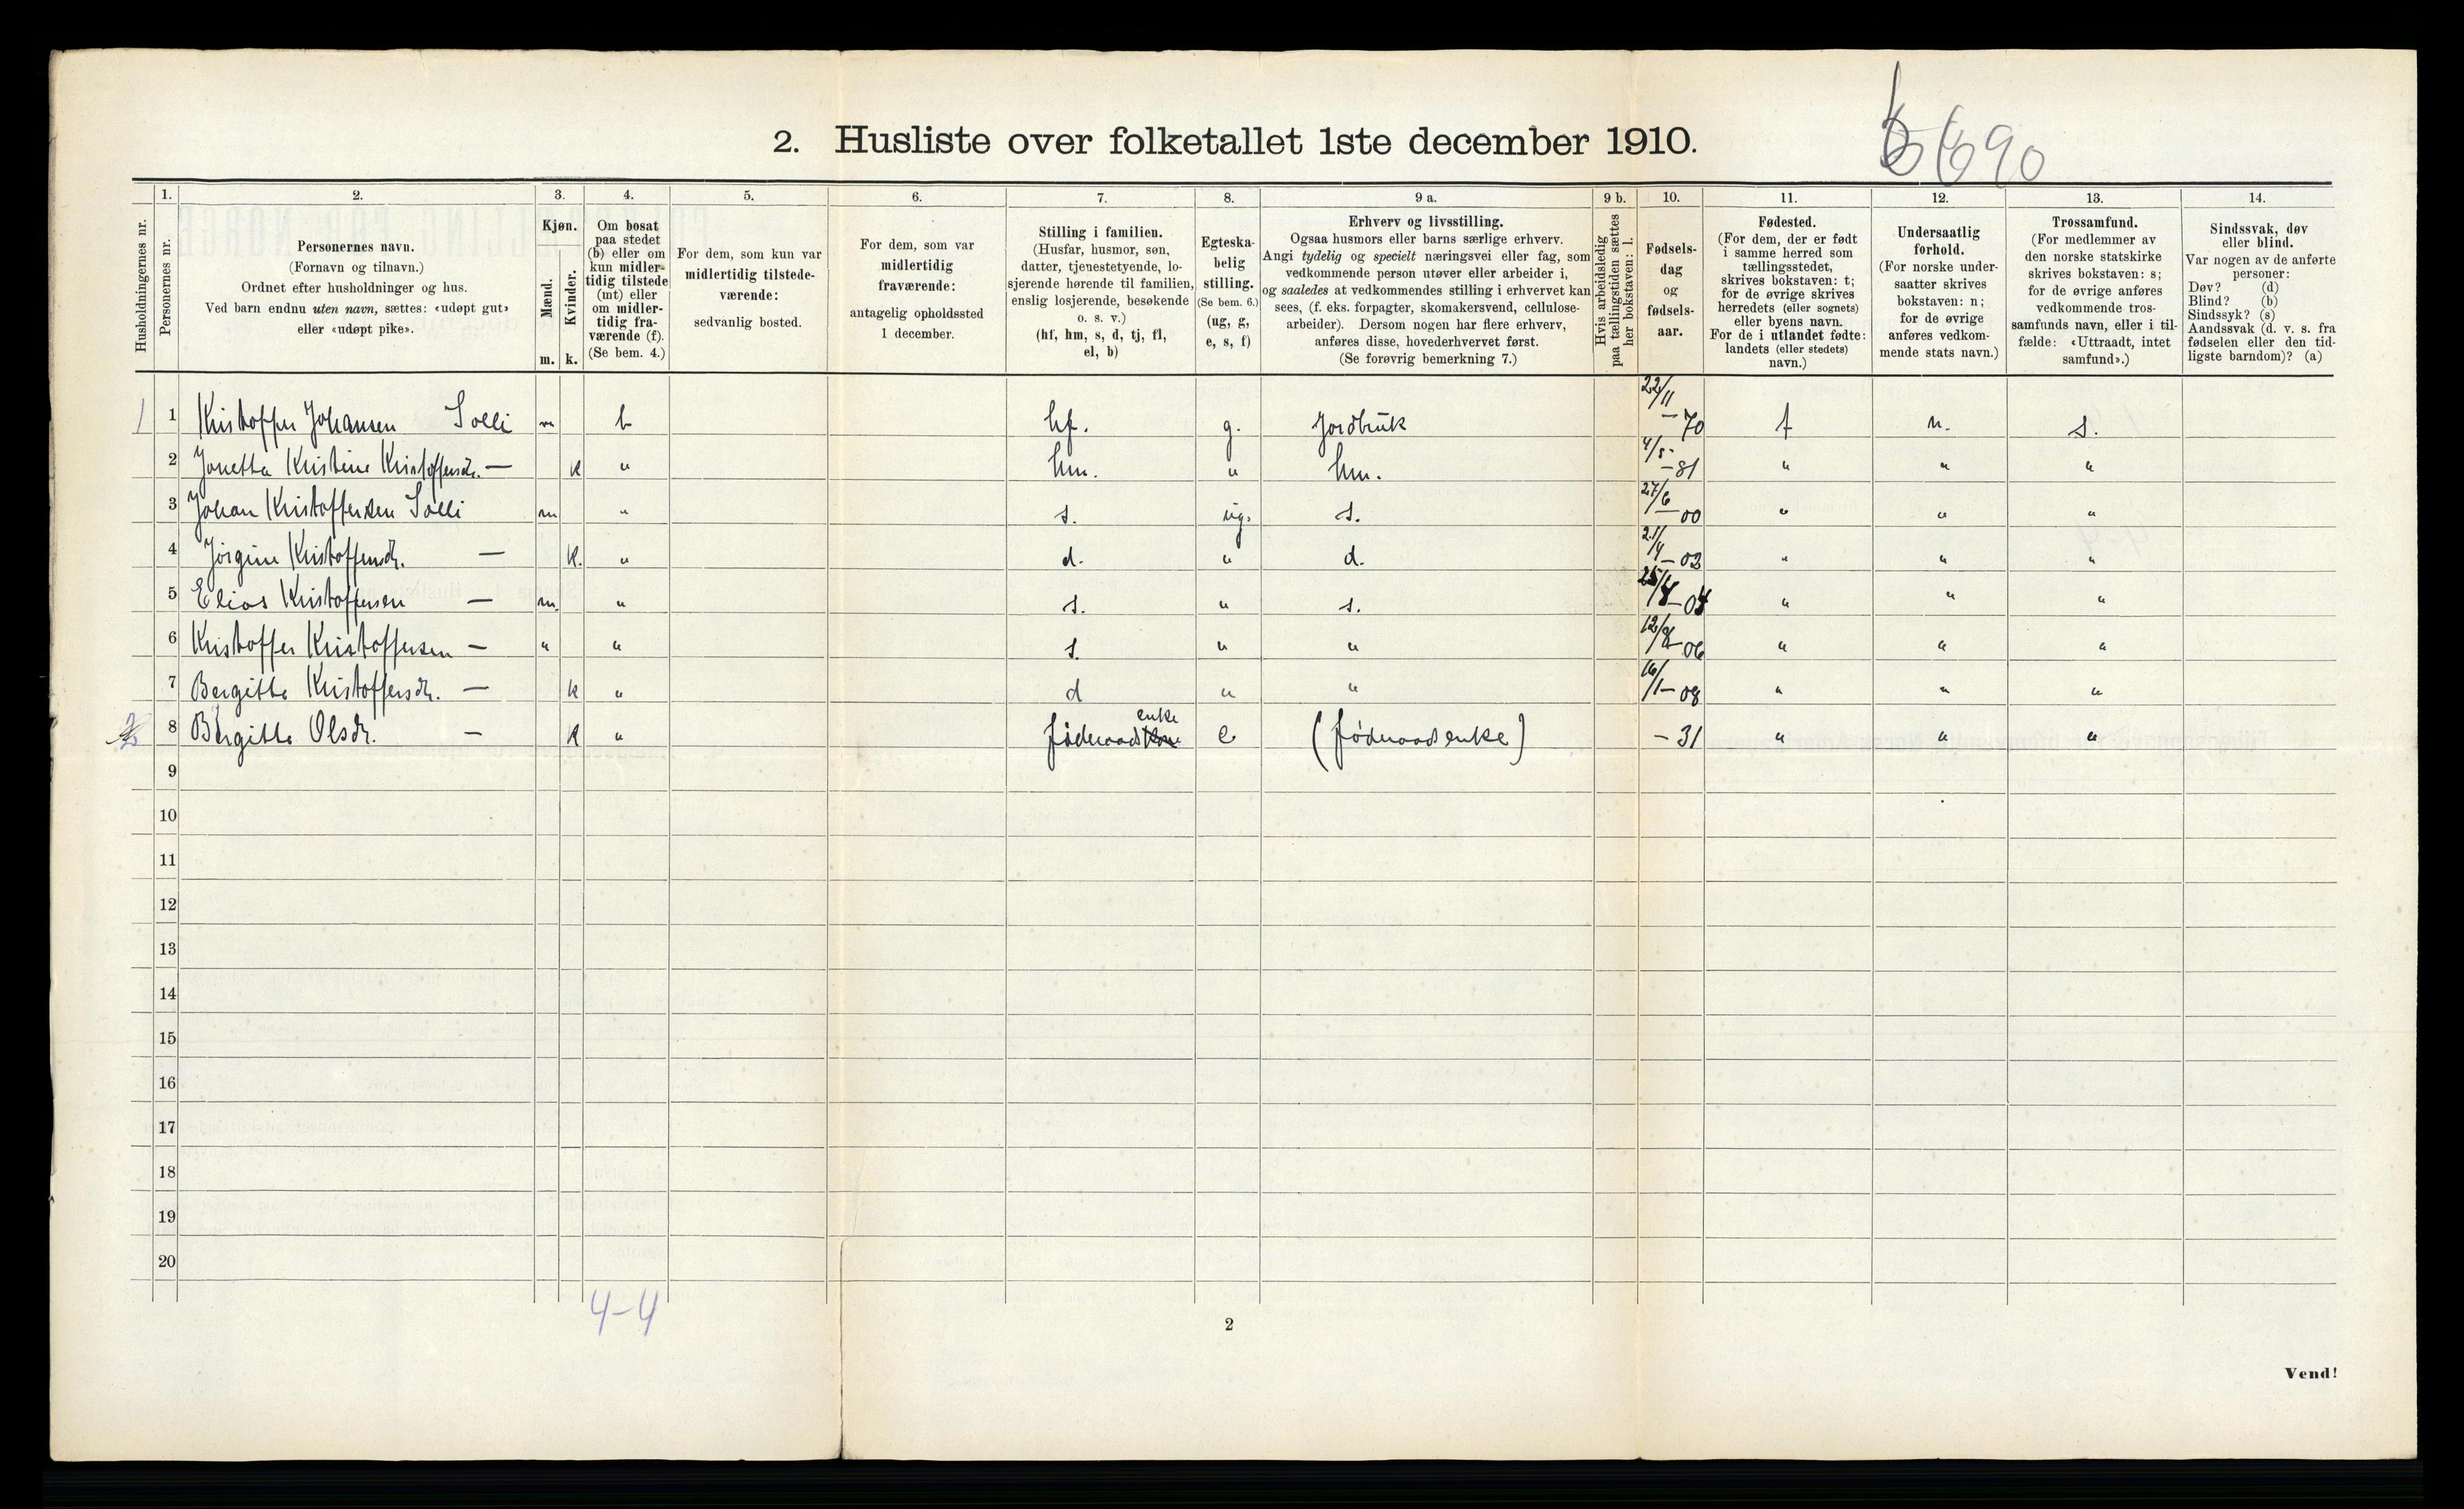 2. Husliste over folketallet 1ste december 1910.
6690
Husholdningernes nr.
1. Personernes nr.
2. Personernes navn.
(Fornavn og tilnavn.)
Ordnet efter husholdninger og hus.
Ved barn endnu uten navn, sættes: «udøpt gut»
eller «udøpt pike».
3. Kjøn.
Mænd. m.
Kvinder. k.
4. Om bosat
paa stedet
(b) eller om
kun midler-
tidig tilstede
(mt) eller
om midler-
tidig fra-
værende (f).
(Se bem. 4.)
5. For dem, som kun var
midlertidig tilstede-
værende:
sedvanlig bosted.
6. For dem, som var
midlertidig
fraværende:
antagelig opholdssted
1 december.
7. Stilling i familien.
(Husfar, husmor, søn,
datter, tjenestetyende, lo-
sjerende hørende til familien,
enslig losjerende, besøkende
o. s. v.)
(hf, hm, s, d, tj, fl,
el, b)
8. Egteska-
belig
stilling.
(Se bem. 6.)
(ug, g,
e, s, f)
9 a. Erhverv og livsstilling.
Ogsaa husmors eller barns særlige erhverv.
Angi tydelig og specielt næringsvei eller fag, som
vedkommende person utøver eller arbeider i,
og saaledes at vedkommendes stilling i erhvervet kan
sees, (f. eks. forpagter, skomakersvend, cellulose-
arbeider). Dersom nogen har flere erhverv,
anføres disse, hovederhvervet først.
(Se forøvrig bemerkning 7.)
9 b. Hvis arbeidsledig
paa tællingstiden sættes
her bokstaven: l.
10. Fødsels-
dag
og
fødsels-
aar.
11. Fødested.
(For dem, der er født
i samme herred som
tællingsstedet,
skrives bokstaven: t;
for de øvrige skrives
herredets (eller sognets)
eller byens navn.
For de i utlandet fødte:
landets (eller stedets)
navn.)
12. Undersaatlig
forhold.
(For norske under-
saatter skrives
bokstaven: n;
for de øvrige
anføres vedkom-
mende stats navn.)
13. Trossamfund.
(For medlemmer av
den norske statskirke
skrives bokstaven: s;
for de øvrige anføres
vedkommende tros-
samfunds navn, eller i til-
fælde: «Uttraadt, intet
samfund».)
14. Sindssvak, døv
eller blind.
Var nogen av de anførte
personer:
Døv? (d)
Blind? (b)
Sindssyk? (s)
Aandssvak (d. v. s. fra
fødselen eller den tid-
ligste barndom)? (a)
1 1 Kristoffer Johansen Solli m b hf. g. Jordbruk 22/11 - 70 t n. s.
2 Jonetta Kristine Kristoffersdr. — k " hm. " hm. 4/5 - 81 " " "
3 Johan Kristoffersen Solli m " s. ug. s. 27/6 - 00 " " "
4 Jørgine Kristoffersdr. — k. " d. " d. 21/4 - 02 " " "
5 Elias Kristoffersen — m. " s. " s. 25/4 - 04 " " "
6 Kristoffer Kristoffersen — " " s. " " 12/8 - 06 " " "
7 Bergitte Kristoffersdr. — k " d " " 16/1 - 08 " " "
2 8 Bergitte Olsdr. — k " føderaadsenke e (føderaadsenke) - 31 " " "
9
10
11
12
13
14
15
16
17
18
19
20
4-4
2
Vend!